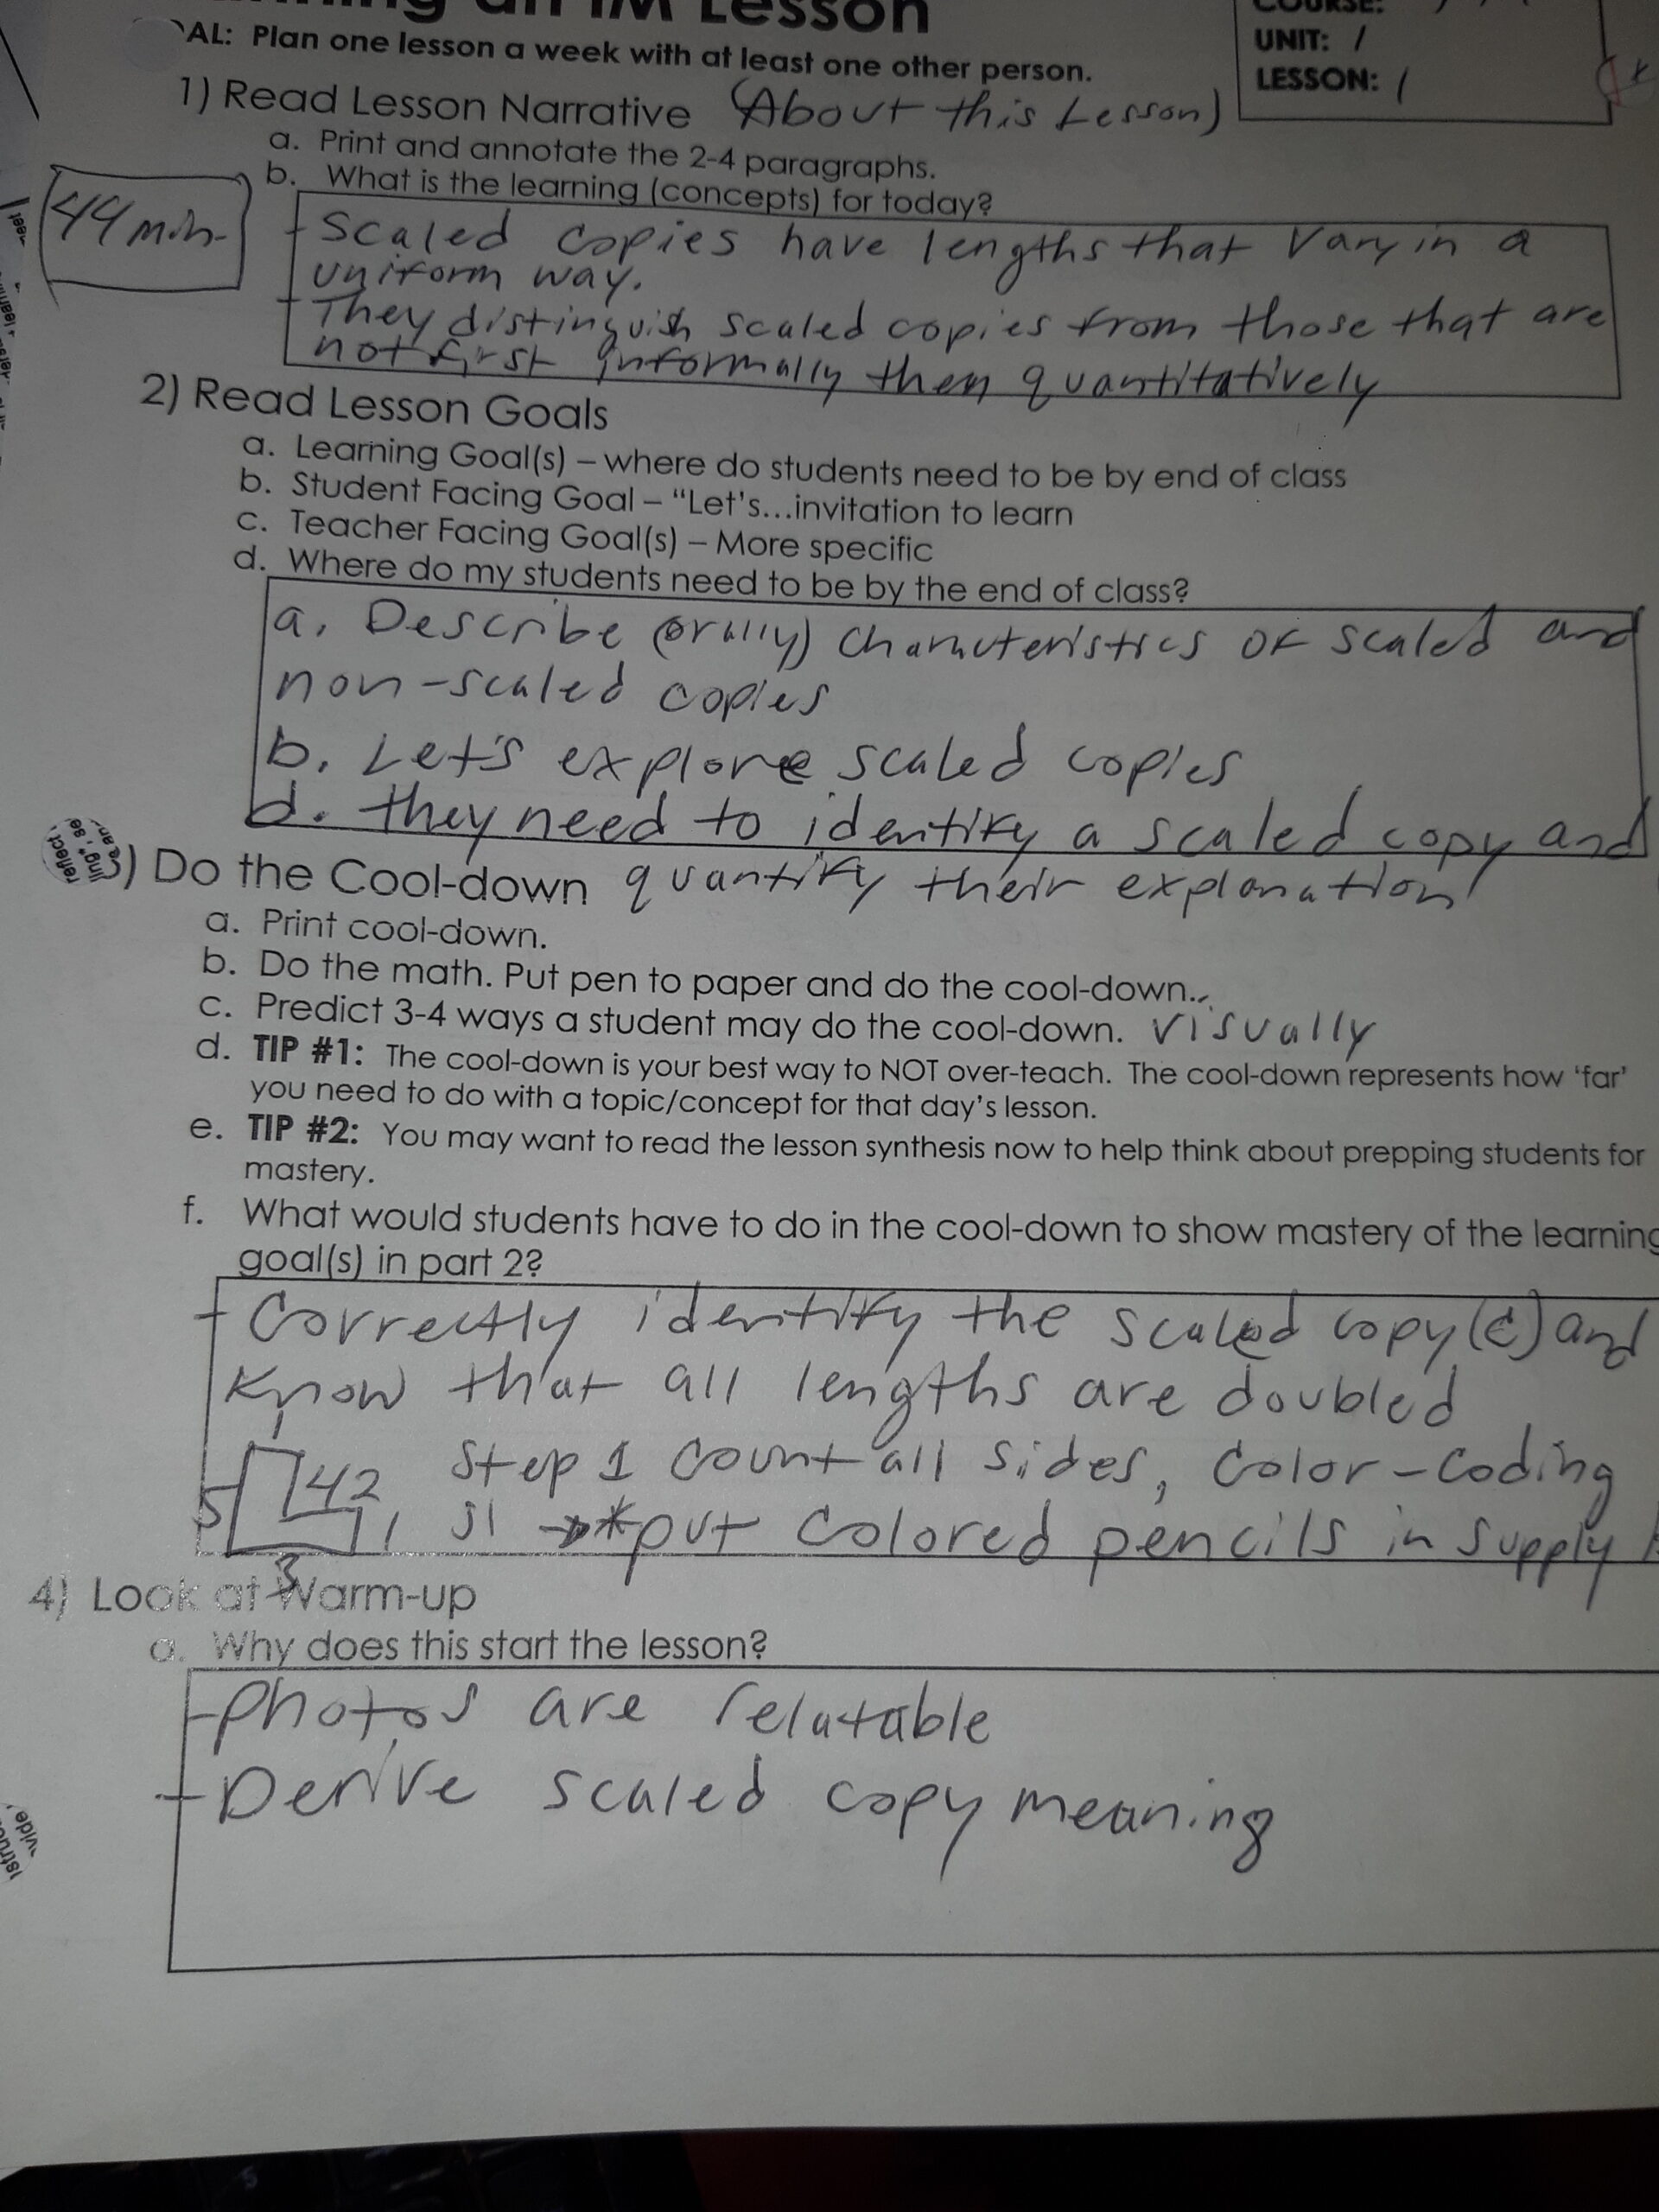 an IM Lesson
AL: Plan one lesson a week with at least one other person.
COURSE:
UNIT: 1
LESSON: 1
1) Read Lesson Narrative (About this Lesson)
a. Print and annotate the 2-4 paragraphs.
b. What is the learning (concepts) for today?
44 min.
- Scaled copies have lengths that vary in a
uniform way.
- They distinguish scaled copies from those that are
not first informally then quantitatively
2) Read Lesson Goals
a. Learning Goal(s) – where do students need to be by end of class
b. Student Facing Goal – "Let's...invitation to learn
c. Teacher Facing Goal(s) – More specific
d. Where do my students need to be by the end of class?
a. Describe (orally) characteristics of scaled and
non-scaled copies
b. Let's explore scaled copies
d. they need to identify a scaled copy and
quantify their explanation
3) Do the Cool-down
a. Print cool-down.
b. Do the math. Put pen to paper and do the cool-down.
c. Predict 3-4 ways a student may do the cool-down. visually
d. TIP #1: The cool-down is your best way to NOT over-teach. The cool-down represents how 'far'
you need to do with a topic/concept for that day's lesson.
e. TIP #2: You may want to read the lesson synthesis now to help think about prepping students for
mastery.
f. What would students have to do in the cool-down to show mastery of the learning
goal(s) in part 2?
- Correctly identify the scaled copy (c) and
know that all lengths are doubled
1
5 42 Step 1 count all sides, color-coding
1 * put colored pencils in supply
3
4) Look at Warm-up
a. Why does this start the lesson?
- Photos are relatable
- Derive scaled copy meaning